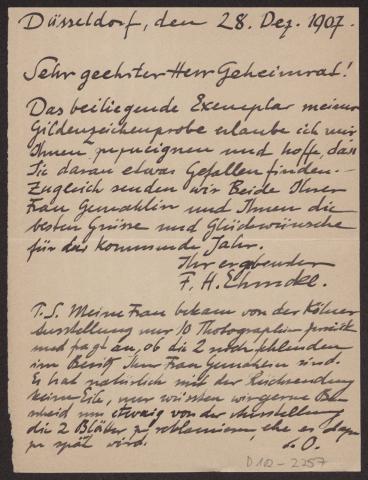 Düsseldorf, den 28. Dez. 1907.
Sehr geehrter Herr Geheimrat!
Das beiliegende Exemplar meiner
Gildenzeichenprobe erlaube ich mir
Ihnen zuzueignen und hoffe, daß
Sie daran etwas Gefallen finden. –
Zugleich senden wir Beide Ihrer
Frau Gemahlin und Ihnen die
besten Grüsse und Glückwünsche
für das kommende Jahr.
Ihr ergebenster
F. H. Ehmcke.
P.S. Meine Frau bekam von der Kölner
Ausstellung nur 10 Photographien zurück
und fragt an, ob die 2 noch fehlenden
im Besitz Ihrer Frau Gemahlin sind.
Es hat natürlich mit der Rücksendung
keine Eile, nur wüssten wir gerne Be-
scheid um etwaig von der Ausstellung
die 2 Blätter zu reklamieren, ehe es dazu
zu spät wird. d. O.
D 102 – 2257